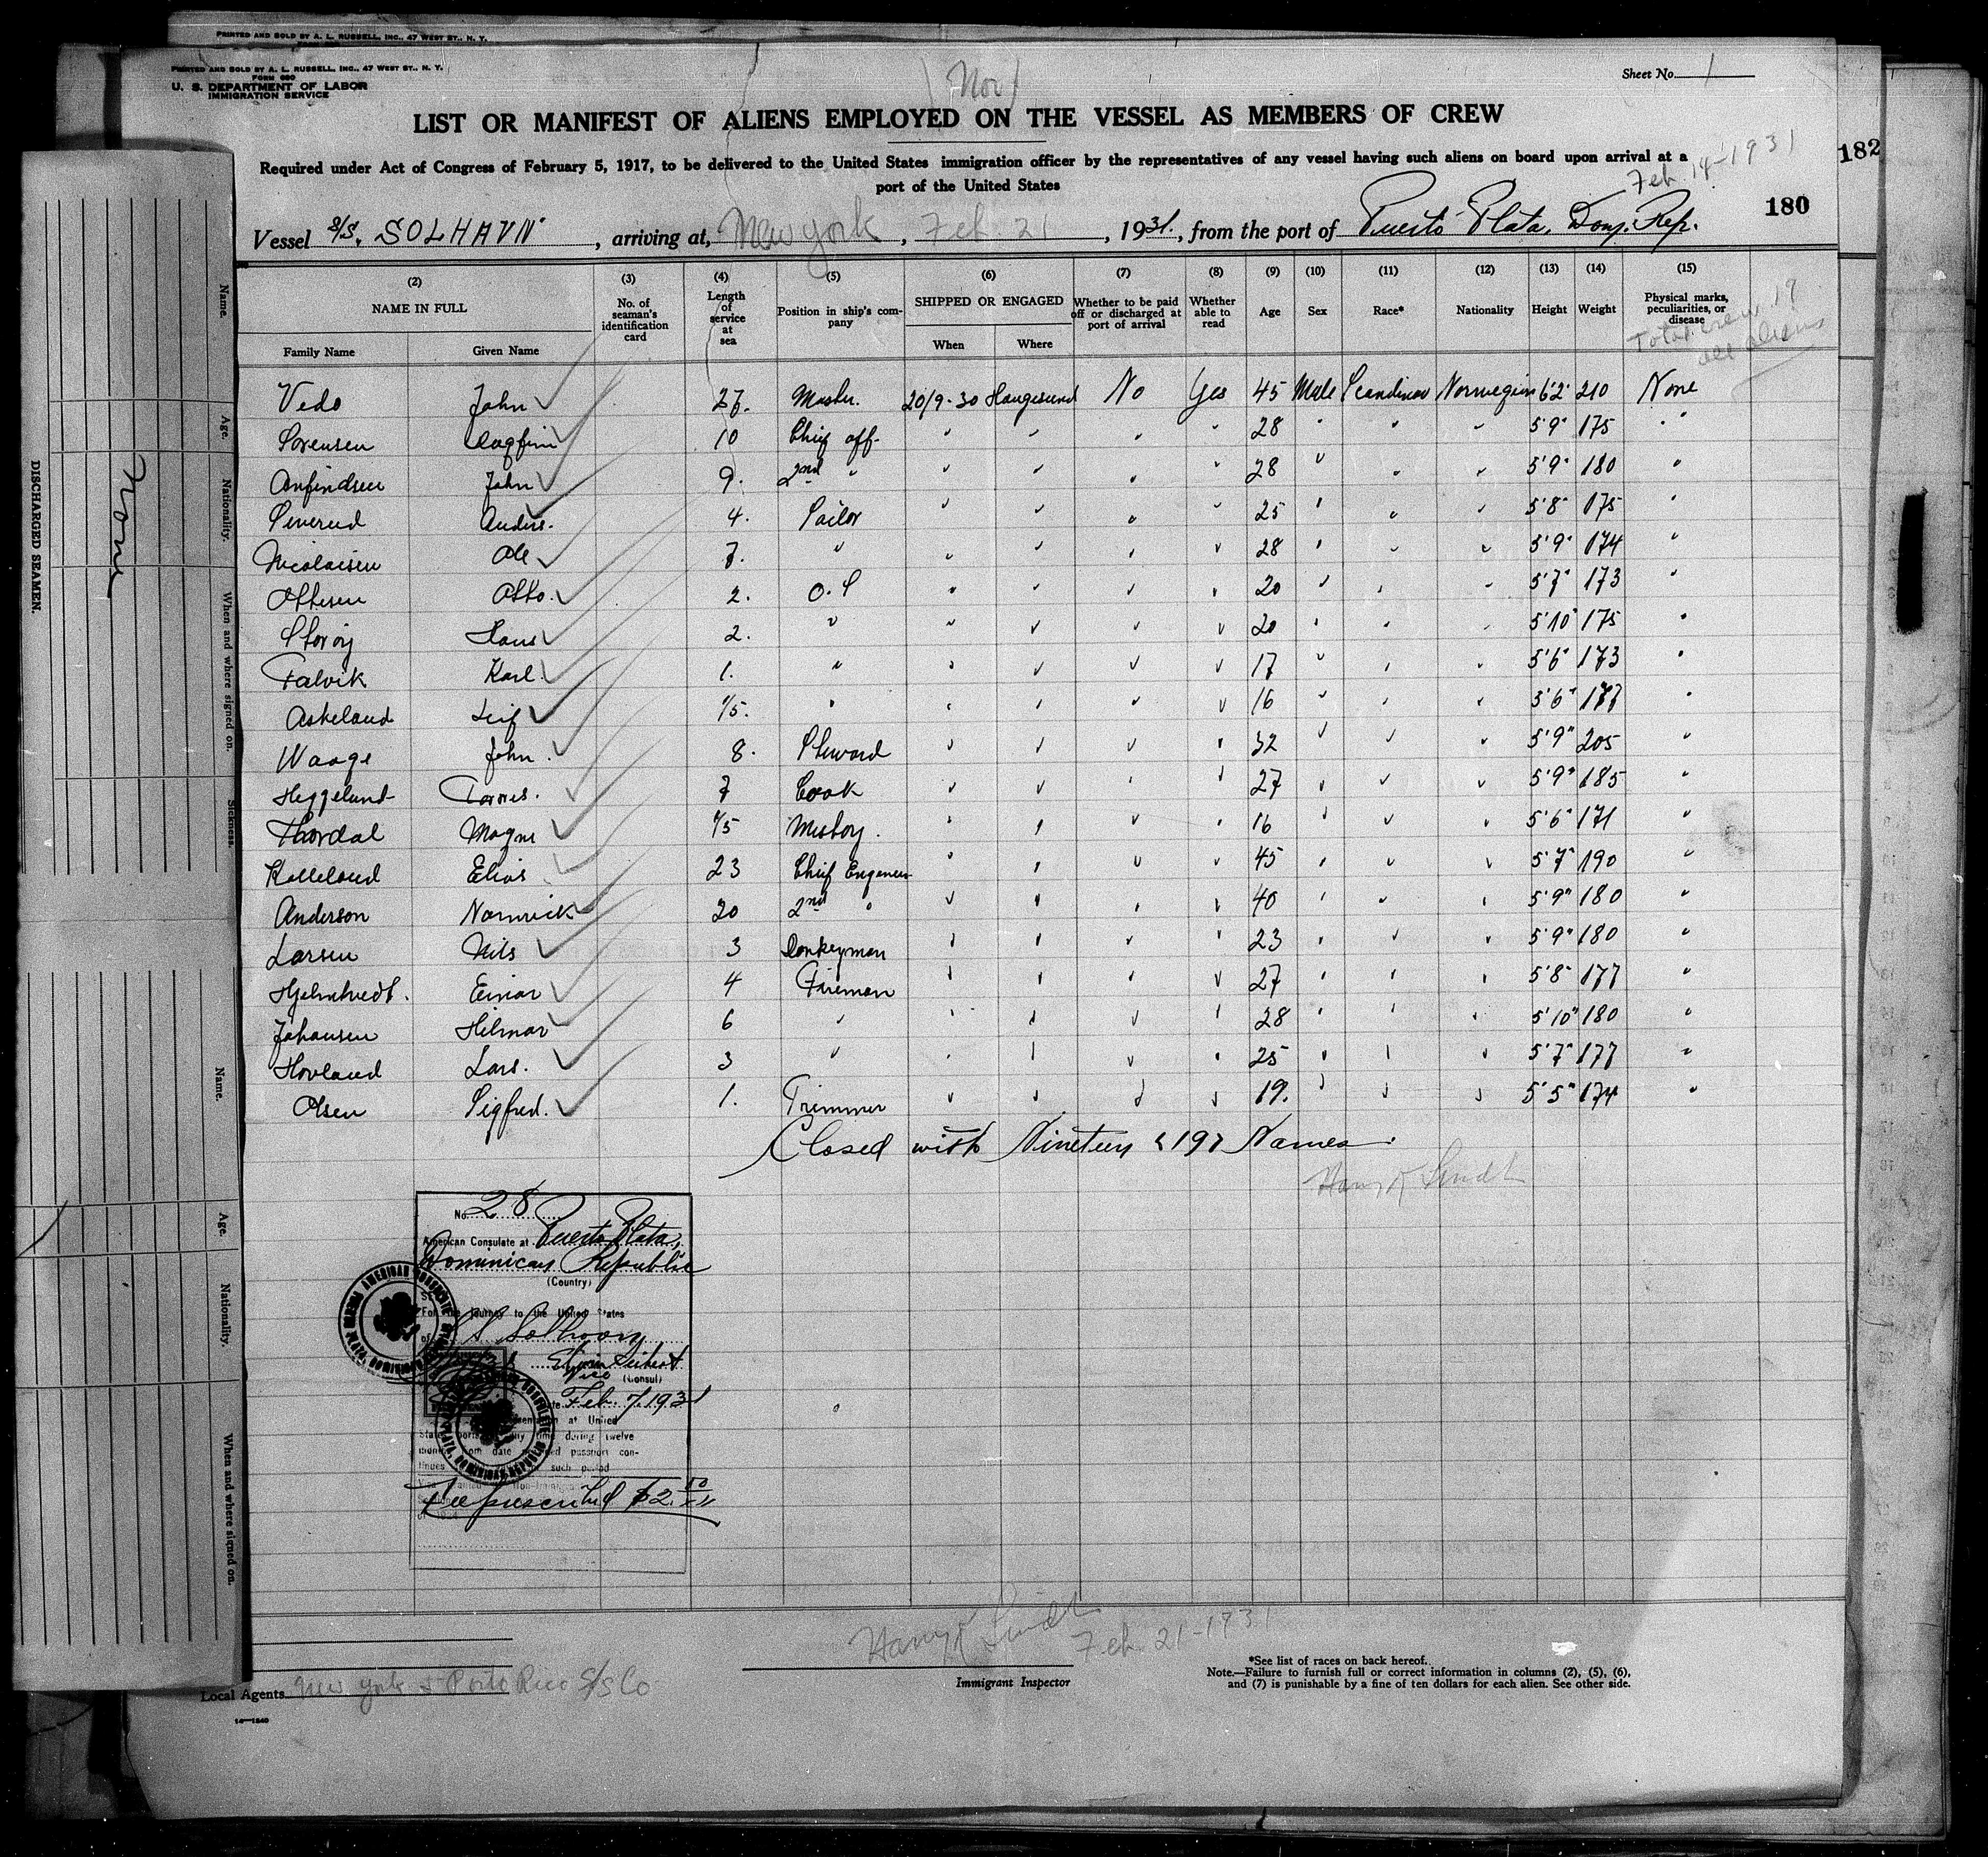 PRINTED AND SOLD BY A. L. RUSSELL, INC., 47 WEST ST., N. Y.
PRINTED AND SOLD BY A. L. RUSSELL, INC., 47 WEST ST., N. Y.
FORM 680
U. S. DEPARTMENT OF LABOR
IMMIGRATION SERVICE
(Nor)
Sheet No. 1
LIST OR MANIFEST OF ALIENS EMPLOYED ON THE VESSEL AS MEMBERS OF CREW
Required under Act of Congress of February 5, 1917, to be delivered to the United States immigration officer by the representatives of any vessel having such aliens on board upon arrival at a
port of the United States
Feb. 14-1931
182
180
Vessel S/S. SOLHAVN, arriving at, New York, Feb. 21, 1931., from the port of Puerto Plata, Dom. Rep.
(2) (3) (4) (5) (6) (7) (8) (9) (10) (11) (12) (13) (14) (15)
NAME IN FULL No. of seaman's identification card Length of service at sea Position in ship's company SHIPPED OR ENGAGED Whether to be paid off or discharged at port of arrival Whether able to read Age Sex Race* Nationality Height Weight Physical marks, peculiarities, or disease
Family Name Given Name When Where
Total crew 19
all aliens
Vedo John 27. Master. 20/9-30 Haugesund No Yes 45 Male Scandinav Norwegian 6'2" 210 None
Sorensen Dagfinn 10 Chief off. " " " " 28 " " " 5'9" 175 "
Anfindsen John 9. 2nd " " " " " 28 " " " 5'9" 180 "
Severud Anders. 4. Sailor " " " " 25 " " " 5'8" 175 "
Nicolaisen Ole 7. " " " " " 28 " " " 5'9" 174 "
Ottesen Otto. 2. O.S " " " " 20 " " " 5'7" 173 "
Storoy Hans 2. " " " " " 20 " " " 5'10" 175 "
Falvik Karl 1. " " " " " 17 " " " 5'6" 173 "
Askeland Leif 1/5. " " " " " 16 " " " 5'6" 177 "
Waage John. 8. Steward " " " " 32 " " " 5'9" 205 "
Heggelund 7 Cook " " " " 27 " " " 5'9" 185 "
Thordal Magne 1/5 Messboy. " " " " 16 " " " 5'6" 171 "
Kolleland Elias 23 Chief Engineer " " " " 45 " " " 5'7" 190 "
Anderson 20 2nd " " " " " 40 " " " 5'9" 180 "
Larsen Nils 3 Donkeyman " " " " 23 " " " 5'9" 180 "
Hjelmtvedt. Einar 4 Fireman " " " " 27 " " " 5'8" 177 "
Johansen Hilmar 6 " " " " " 28 " " " 5'10" 180 "
Hovland Lars. 3 " " " " " 25 " " " 5'7" 177 "
Olsen Sigfred. 1. Trimmer " " " " 19. " " " 5'5" 174 "
Closed with Nineteen (19) Names.
No. 28
American Consulate at Puerto Plata,
Dominican Republic
(Country)
For the journey to the United States
of S.S. Solhavn
(Consul)
Feb. 7, 1931
at United
States ports any time during twelve
months from date passport con-
tinues such period
Fee prescribed $2.50
Feb. 21-1931
Immigrant Inspector
Local Agents New York & Porto Rico S/S Co
14—1240
*See list of races on back hereof.
Note.—Failure to furnish full or correct information in columns (2), (5), (6),
and (7) is punishable by a fine of ten dollars for each alien. See other side.
DISCHARGED SEAMEN.
None
Name.
Age.
Nationality.
When and where signed on.
Sickness.
Name.
Age.
Nationality.
When and where signed on.